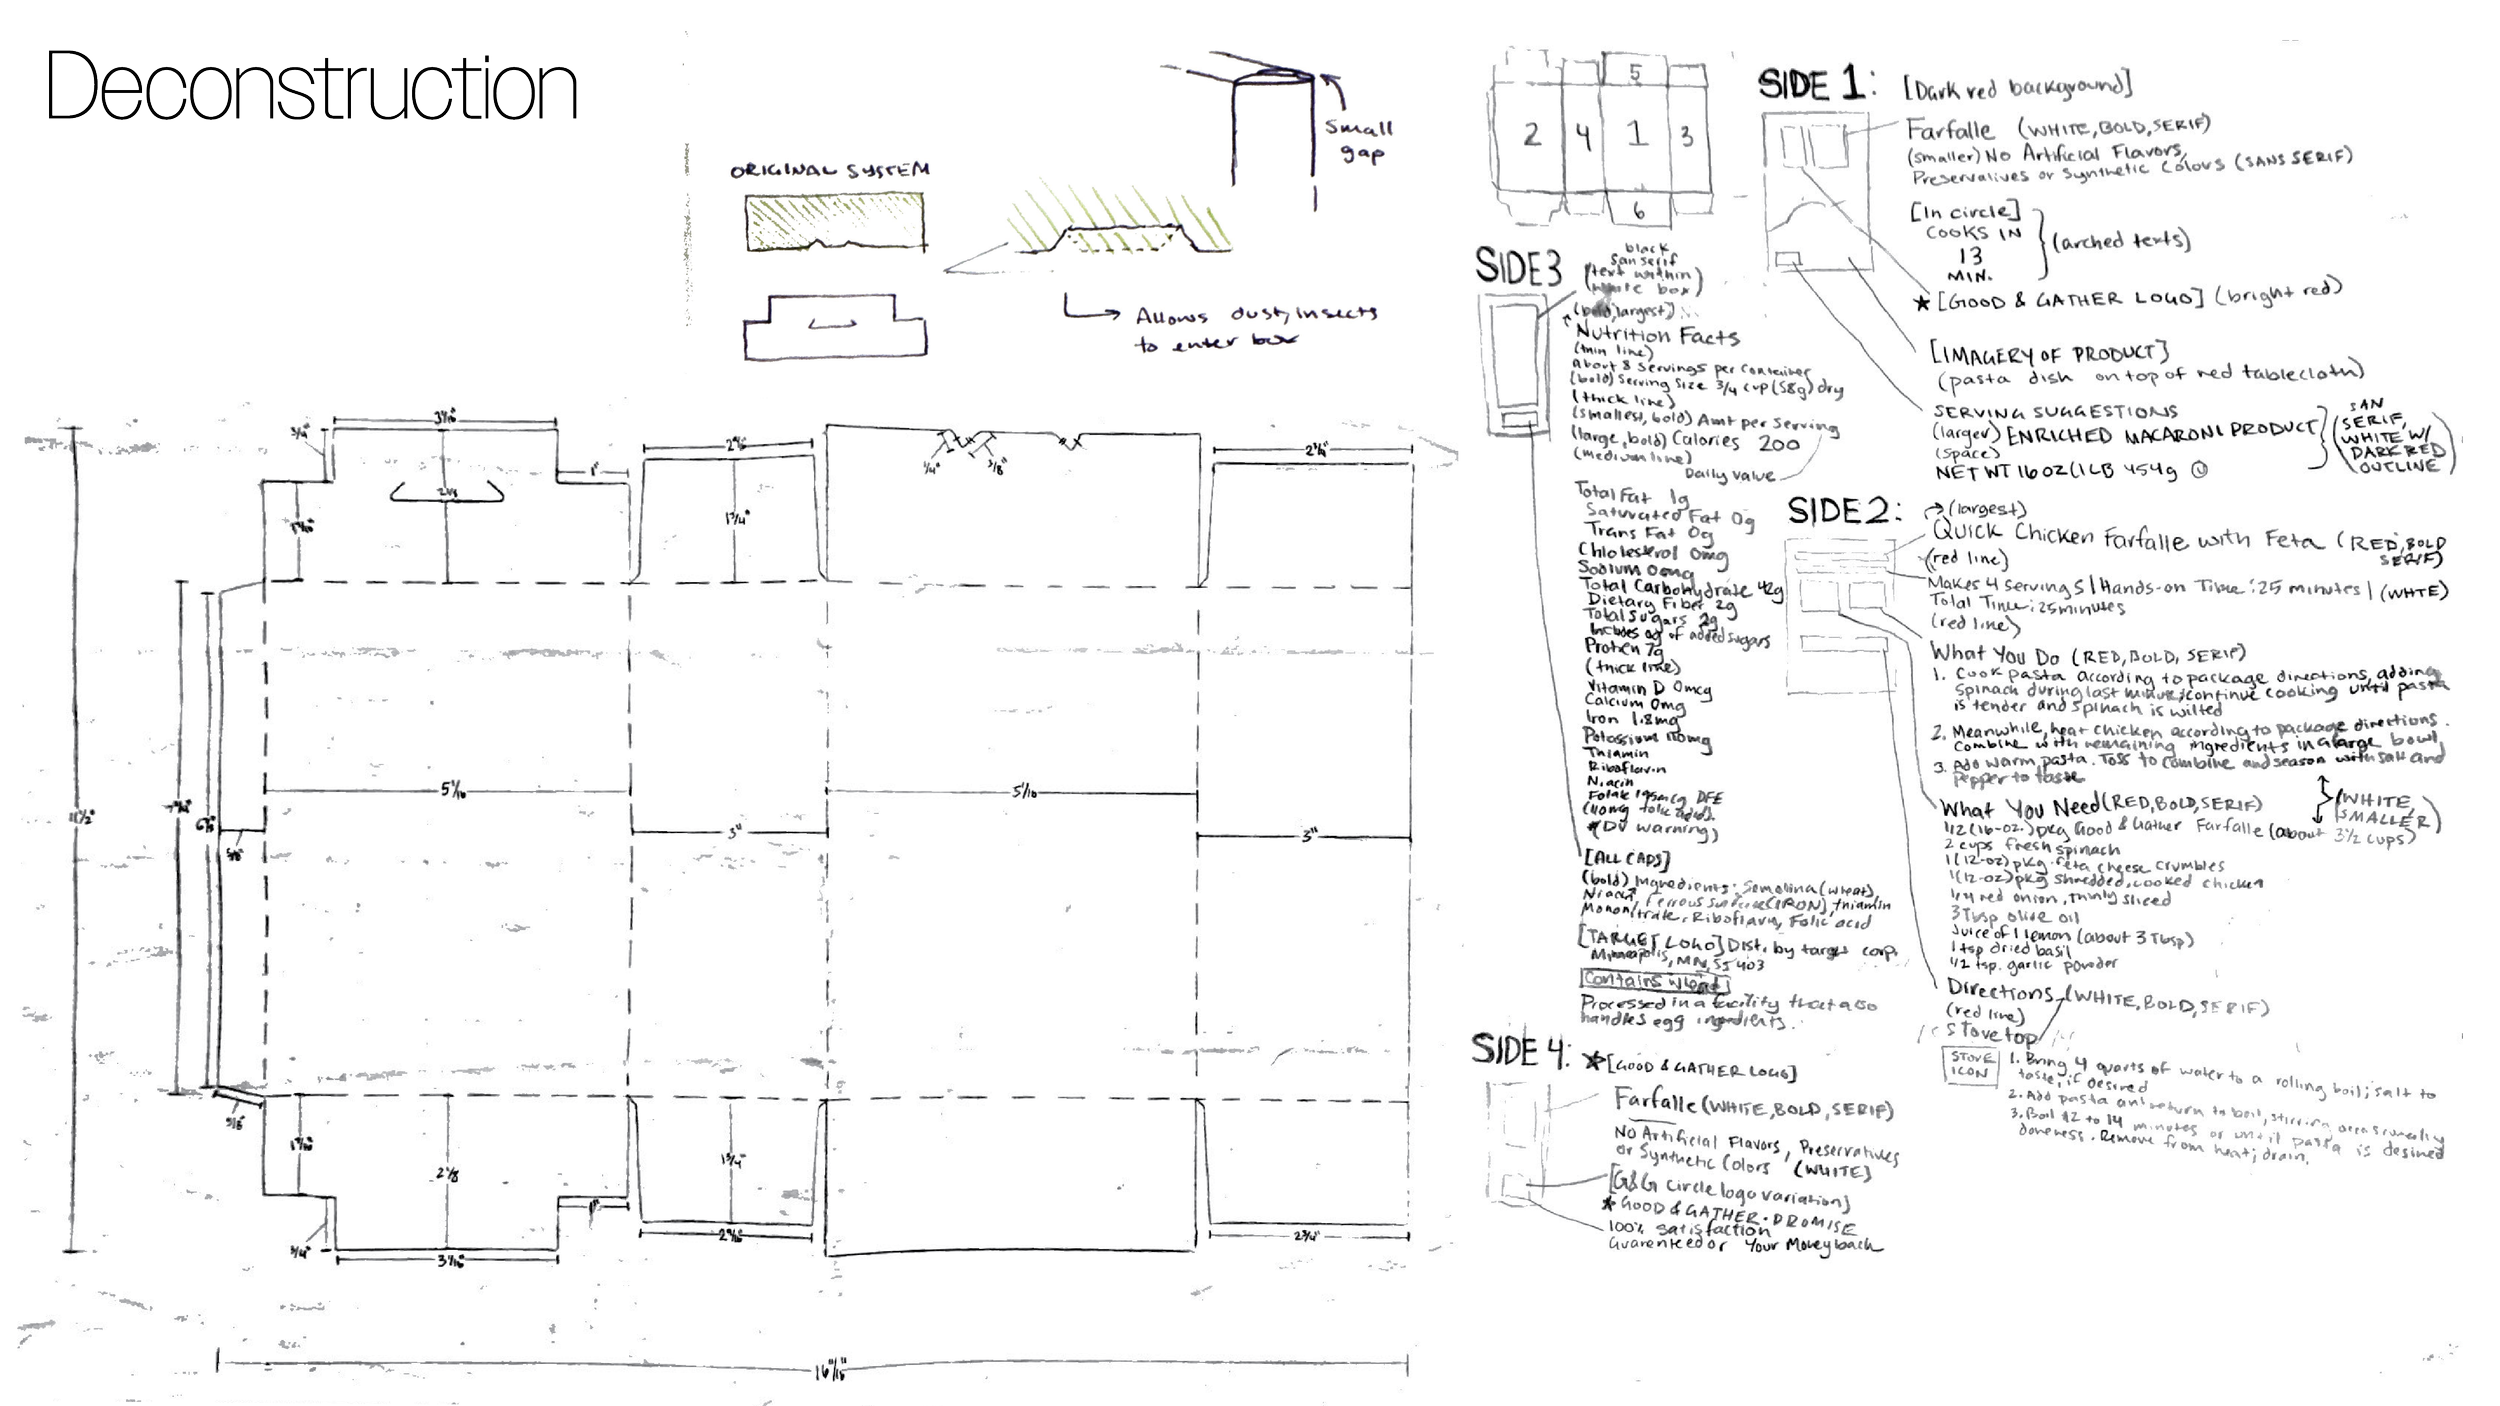 Deconstruction
ORIGINAL SYSTEM
small
gap
Allows dust, insects
to enter box
3 1/16"
3/4"
1"
2 1/8
1 3/4"
1/4"
3/8"
2 3/4"
5 1/16
3"
5 1/16
3"
5/8"
5/8"
2 5/8
1 3/4"
3/4"
3 1/16"
1"
2 3/4"
16 11/16"
5
2 4 1 3
6
SIDE 1: [Dark red background]
Farfalle (WHITE, BOLD, SERIF)
(smaller) No Artificial Flavors,
Preservatives or Synthetic Colours (SANS SERIF)
[In circle]
COOKS IN
13
MIN.
(arched texts)
★ [GOOD & GATHER LOGO] (bright red)
[IMAGERY OF PRODUCT]
(pasta dish on top of red tablecloth)
SERVING SUGGESTIONS
(larger) ENRICHED MACARONI PRODUCT
(space)
NET WT 16 OZ (1 LB 454g
(SAN
SERIF,
WHITE W/
DARK RED
OUTLINE)
SIDE 2: → (largest)
Quick Chicken Farfalle with Feta (RED, BOLD
SERIF)
(red line)
Makes 4 servings | Hands-on Time: 25 minutes | (WHTE)
Total Time: 25 minutes
(red line)
What You Do (RED, BOLD, SERIF)
1. Cook pasta according to package directions, adding
spinach during last minute; continue cooking until pasta
is tender and spinach is wilted
2. Meanwhile, heat chicken according to package directions.
Combine with remaining ingredients in a large bowl
3. Add warm pasta. Toss to combine and season with salt and
pepper to taste
(WHITE,
SMALLER)
What You Need (RED, BOLD, SERIF)
1/2 (16-oz.) pkg Good & Gather Farfalle (about 3 1/2 cups)
2 cups fresh spinach
1 (12-oz) pkg feta cheese crumbles
1 (12-oz) pkg shredded, cooked chicken
1/4 red onion, thinly sliced
3 Tbsp olive oil
Juice of 1 lemon (about 3 Tbsp)
1 tsp dried basil
1/2 tsp. garlic powder
Directions (WHITE, BOLD, SERIF)
(red line)
Stovetop
STOVE
ICON
1. Bring 4 quarts of water to a rolling boil; salt to
taste, if desired
2. Add pasta and return to boil, stirring occasionally
3. Boil 12 to 14 minutes or until pasta is desired
doneness. Remove from heat; drain.
SIDE3
black
San serif
(text within
white box)
(bold, largest)
Nutrition Facts
(thin line)
About 8 servings per container
(bold) Serving Size 3/4 cup (58g) dry
(thick line)
(smallest, bold) Amt per Serving
(large, bold) Calories 200
(medium line)
Daily value
Total Fat 1g
Saturated Fat 0g
Trans Fat 0g
Chlolesterol 0mg
Sodium 0mg
Total Carbohydrate 42g
Dietary Fiber 2g
Total Sugars 2g
Includes 0g of added sugars
Protien 7g
(thick line)
Vitamin D 0mcg
Calcium 0mg
Iron 1.8mg
Potassium 110mg
Thiamin
Riboflavin
Niacin
Folate 195mcg DFE
(110mg folic acid)
(DV warning)
[ALL CAPS]
(bold) Ingredients: Semolina (wheat),
Niacin, Ferrous (IRON), thiamin
Mononitrate, Riboflavin, Folic acid
[TARGET LOGO] Dist. by target corp.
Minneapolis, MN, 55403
Contains wheat
Processed in a facility that also
handles egg ingredients.
SIDE 4: ★ [GOOD & GATHER LOGO]
Farfalle (WHITE, BOLD, SERIF)
No Artificial Flavors, Preservatives
or Synthetic Colors (WHITE)
[G&G circle logo variation]
★ GOOD & GATHER • PROMISE
100% satisfaction
Guarenteed or Your Money back